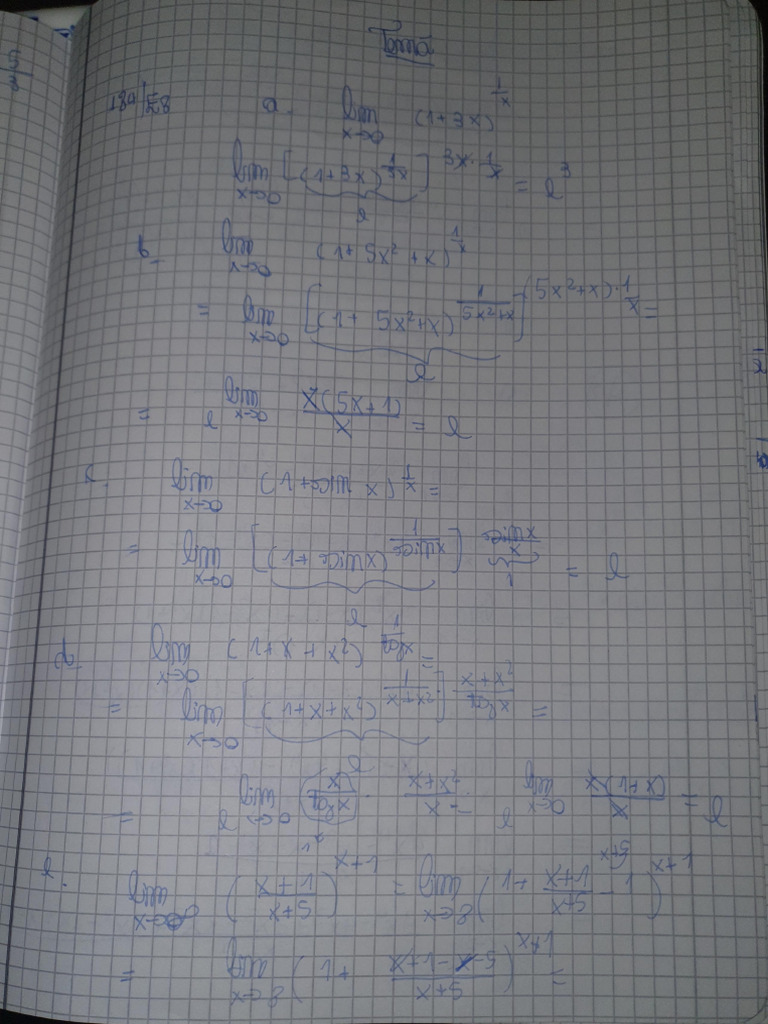 Temă
189/E8 a. lim x→0 (1+3x)^(1/x)
lim x→0 [(1+3x)^(1/3x)]^(3x·1/x) = e^3
e
b. lim x→0 (1+5x²+x)^(1/x)
= lim x→0 [(1+5x²+x)^(1/(5x²+x))]^((5x²+x)·1/x) =
e
= e^(lim x→0 x(5x+1)/x) = e
c. lim x→0 (1+sin x)^(1/x) =
= lim x→0 [(1+sin x)^(1/sin x)]^(sin x/x) = e
e 1
d. lim x→0 (1+x+x²)^(1/tg x) =
= lim x→0 [(1+x+x²)^(1/(x+x²))]^((x+x²)/tg x) =
e
= e^(lim x→0 x/tg x · (x+x²)/x) = e^(lim x→0 x(1+x)/x) = e
1
e. lim x→∞ ((x+1)/(x+5))^(x+1) = lim x→∞ (1 + (x+1)/(x+5) - 1)^(x+1)
= lim x→∞ (1 + (x+1-x-5)/(x+5))^(x+1) =